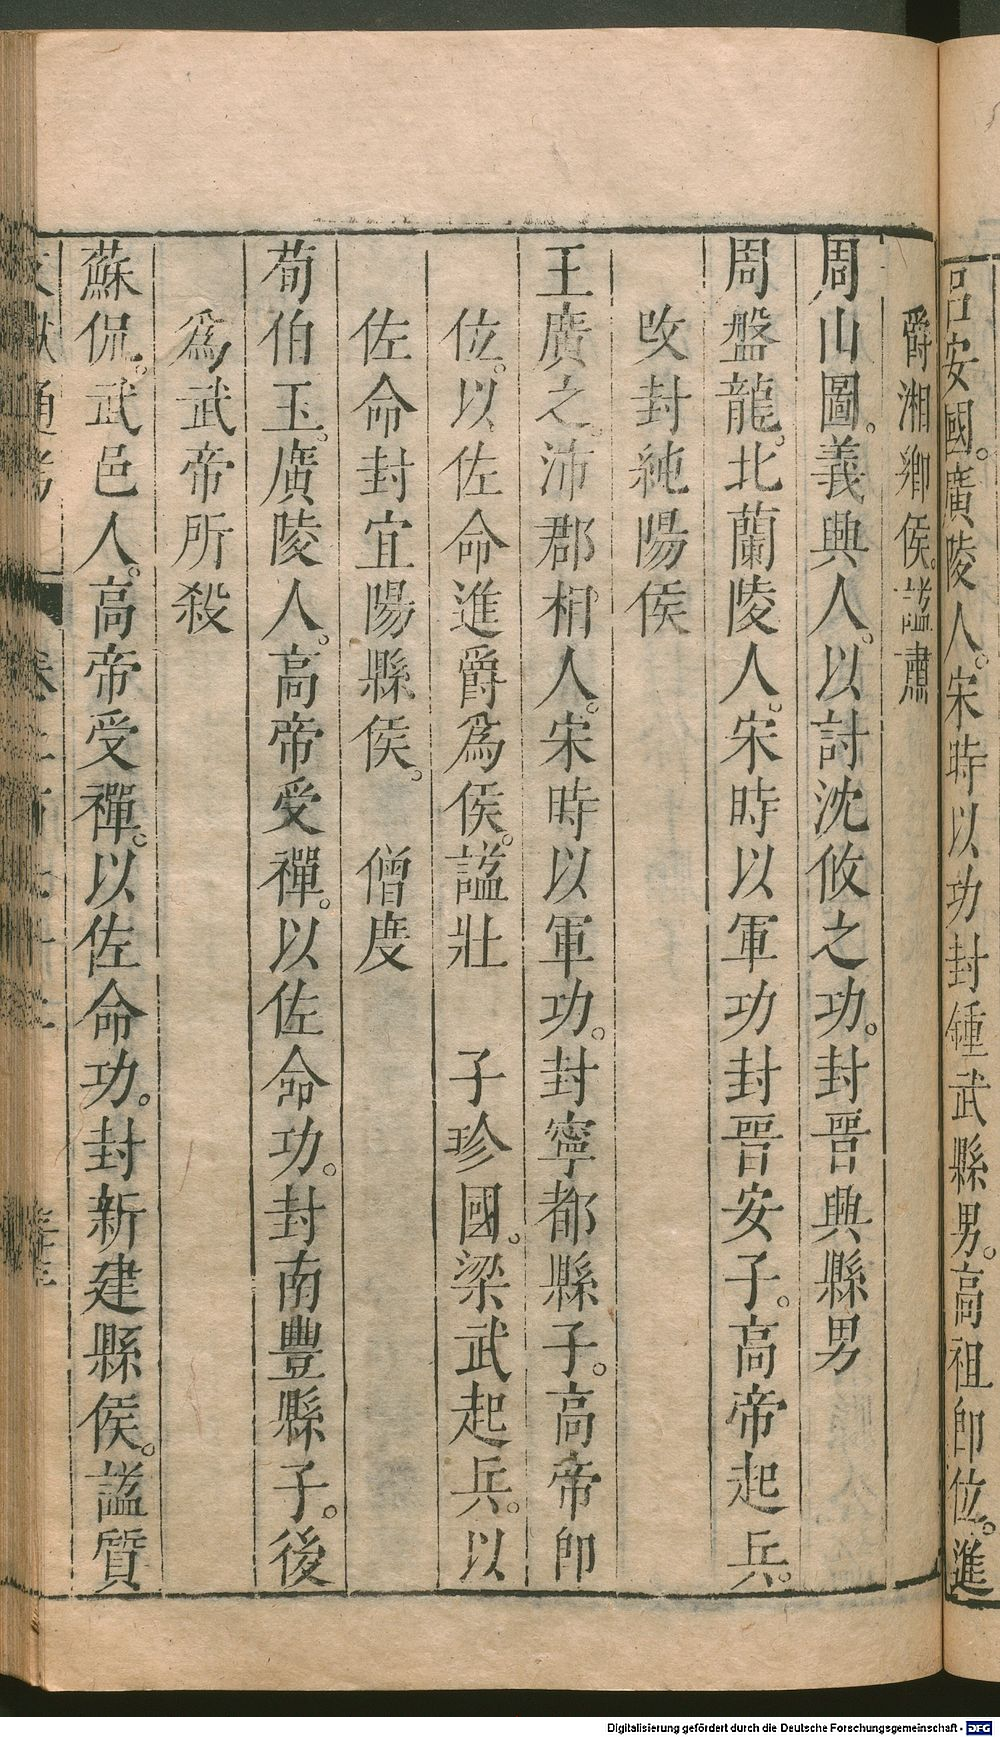 呂安國。廣陵人。宋時以功封鍾武縣男。高祖即位。進
爵湘鄉侯。謚肅
周山圖。義興人。以討沈攸之功。封晉興縣男
周盤龍。北蘭陵人。宋時以軍功封晉安子。高帝起兵。
改封純陽侯
王廣之。沛郡相人。宋時以軍功。封寧都縣子。高帝即
位。以佐命進爵為侯。謚壯 子珍國。梁武起兵。以
佐命封宜陽縣侯。 僧度
荀伯玉。廣陵人。高帝受禪。以佐命功。封南豐縣子。後
為武帝所殺
蘇侃。武邑人。高帝受禪。以佐命功。封新建縣侯。謚質
文獻通考 卷二百七十二
Digitalisierung gefördert durch die Deutsche Forschungsgemeinschaft - DFG